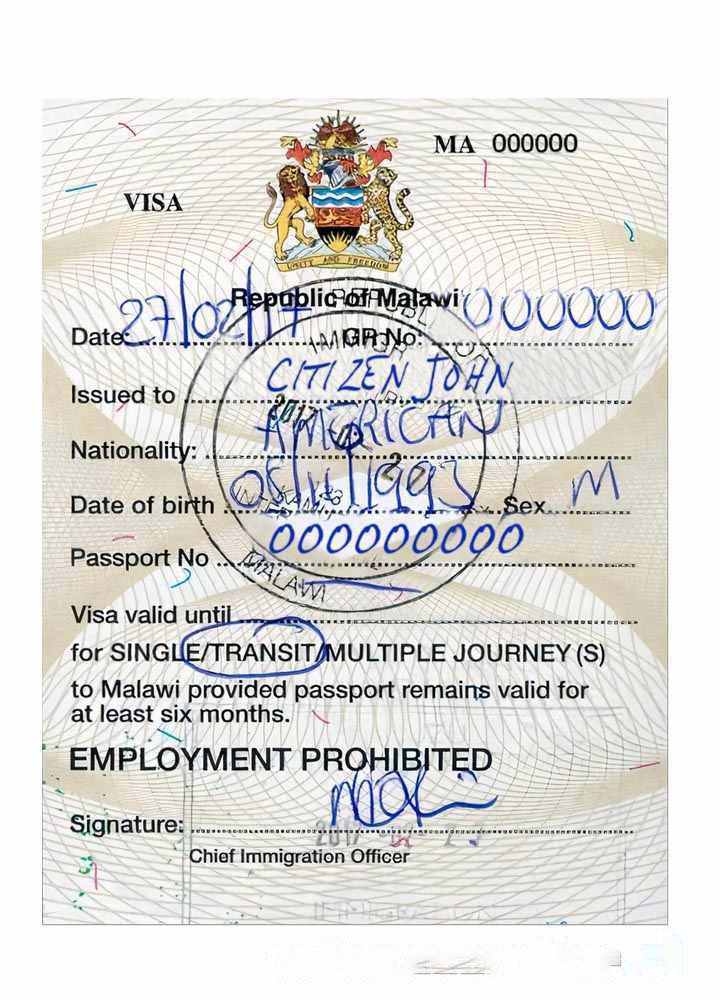 MA 000000
VISA
UNITY AND FREEDOM
Republic of Malawi
Date 27/02/17 GR No: 000000
Issued to CITIZEN JOHN
Nationality: AMERICAN
Date of birth 05/11/1993 Sex M
Passport No 000000000
Visa valid until
for SINGLE/TRANSIT/MULTIPLE JOURNEY (S)
to Malawi provided passport remains valid for
at least six months.
EMPLOYMENT PROHIBITED
Signature:
Chief Immigration Officer
REPUBLIC OF
MALAWI